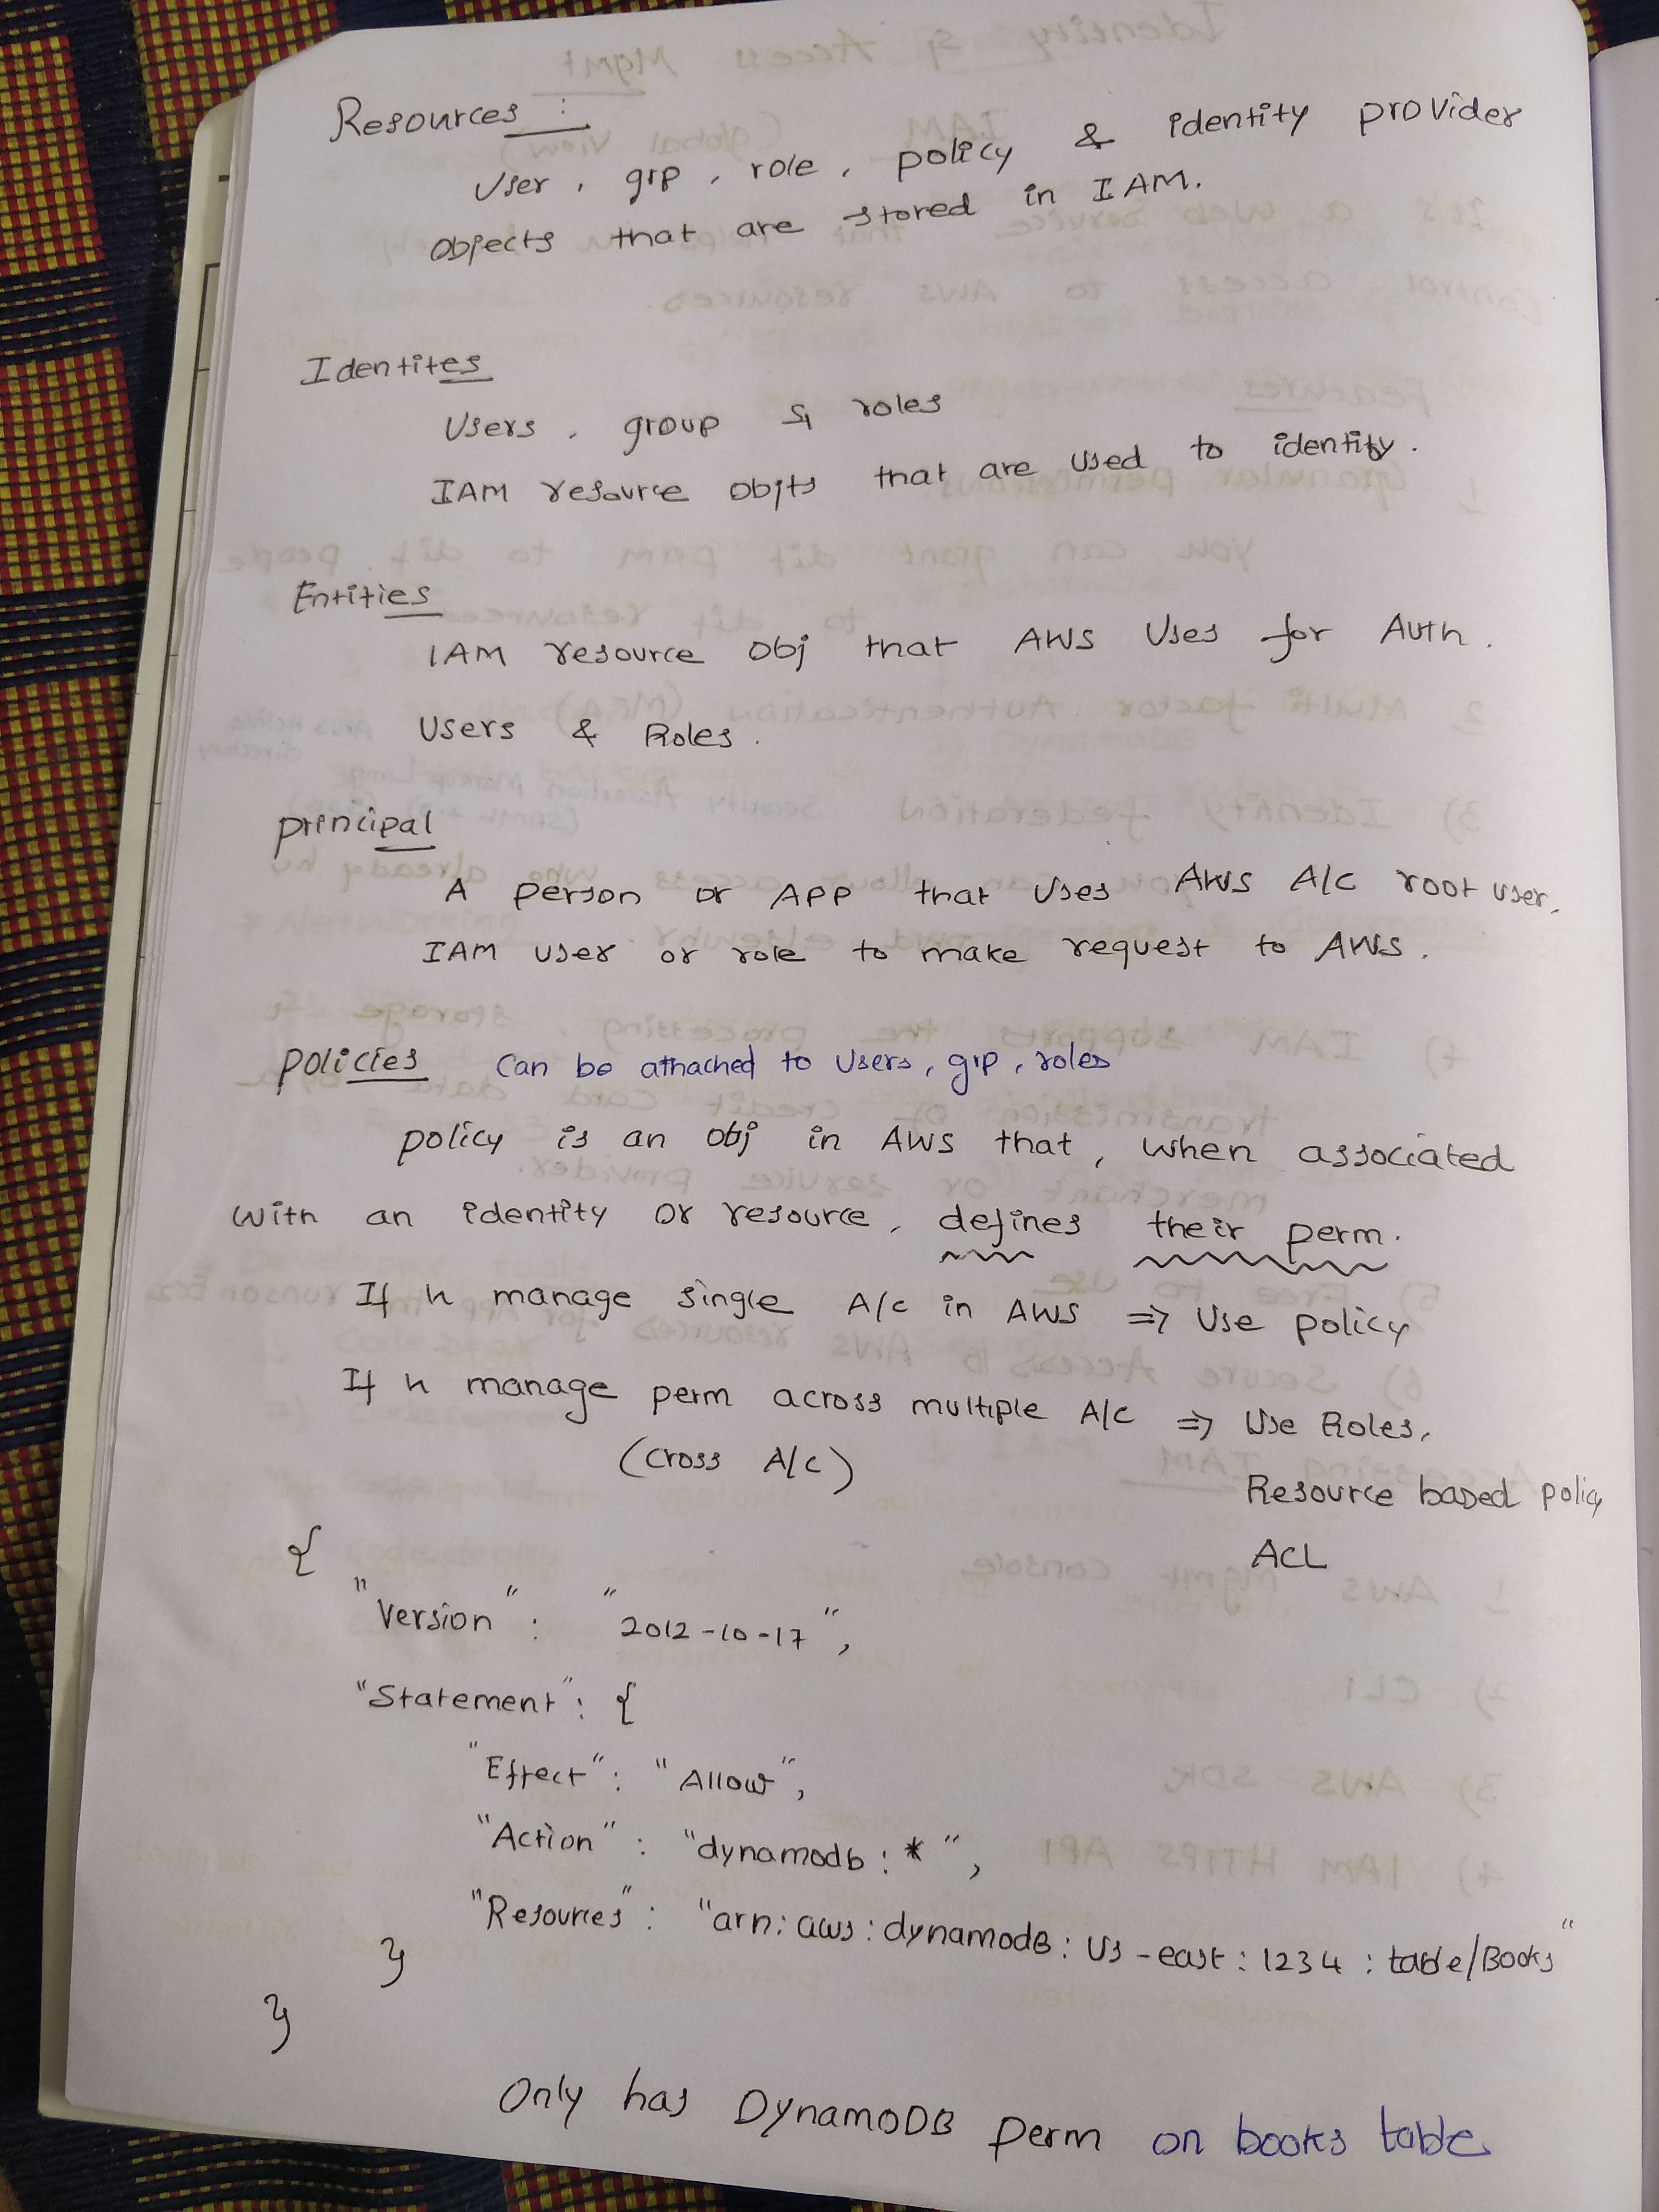 Resources :
User, grp, role, policy & identity provider
objects that are stored in IAM.
Identites
Users, group & roles
IAM resource objts that are used to identity.
Entities
IAM resource obj that AWS uses for Auth.
Users & Roles.
principal
A person or APP that uses AWS A/C root user,
IAM user or role to make request to AWS.
policies can be athached to users, grp, roles
policy is an obj in AWS that, when associated
with an identity or resource, defines their perm.
If u manage single A/c in AWS => Use policy
If u manage perm across multiple A/C => Use Roles,
(Cross A/c)
Resource based policy
ACL
{
"Version" : "2012-10-17",
"Statement" : {
"Effect" : "Allow",
"Action" : "dynamodb : *",
"Resources" : "arn: aws : dynamodB : US-east : 1234 : table/Books"
}
}
Only has DynamoDB perm on books table